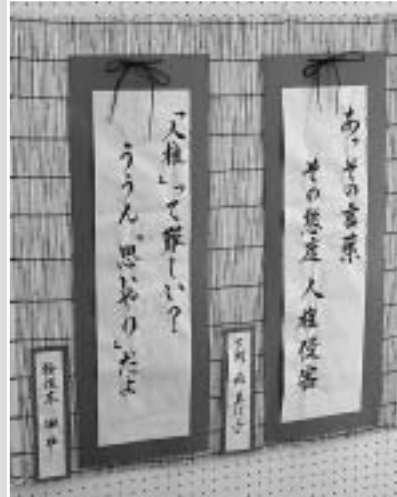 あっその言葉
その態度 人権侵害
「人権」って難しい？
ううん、「思いやり」だよ